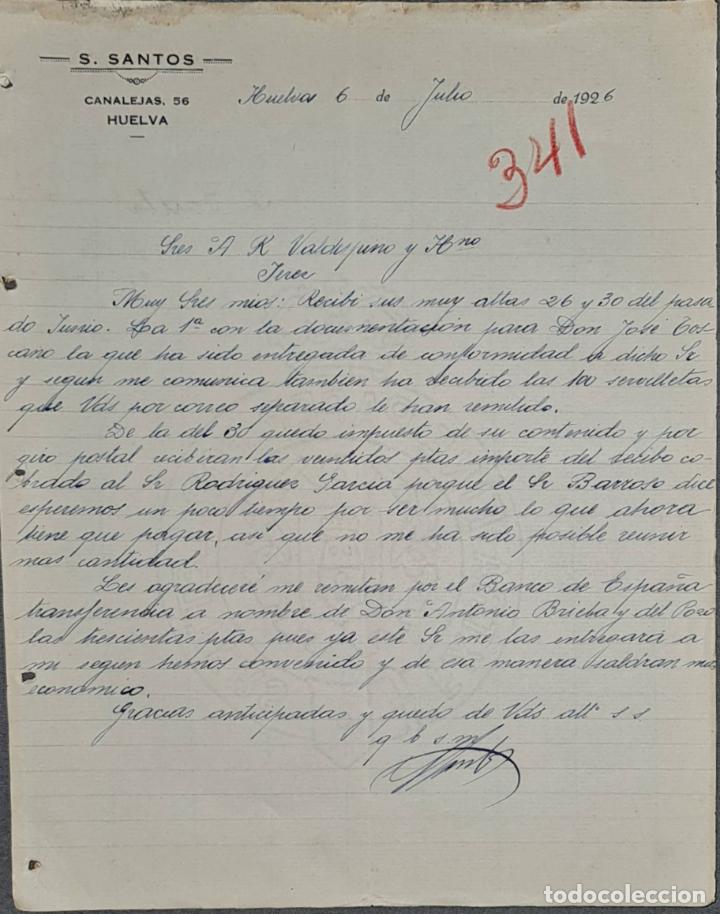 S. SANTOS
CANALEJAS, 56
HUELVA
Huelva 6 de Julio de 1926
341
Sres A R Valdespino y Hno
Jerez
Muy Sres mios: Recibi sus muy attas 26 y 30 del pasa
do Junio. La 1ª con la documentación para Don José Tos
cano la que ha sido entregada de conformidad a dicho Sr
y segun me comunica tambien ha recibido las 100 servilletas
que Vds por correo separado le han remitido.
De la del 30 quedo impuesto de su contenido y por
giro postal recibiran las veintidos ptas importe del recibo co-
brado al Sr Rodriguez Garcia porque el Sr Barroso dice
esperemos un poco tiempo por ser mucho lo que ahora
tiene que pagar, asi que no me ha sido posible reunir
mas cantidad.
Les agradeceré me remitan por el Banco de España
transferencia a nombre de Don Antonio y del Pozo
las trescientas ptas pues ya este Sr me las entregará a
mi segun hemos convenido y de esa manera saldran mas
economico.
Gracias anticipadas y quedo de Vds att s s
q b s m
todocoleccion.net